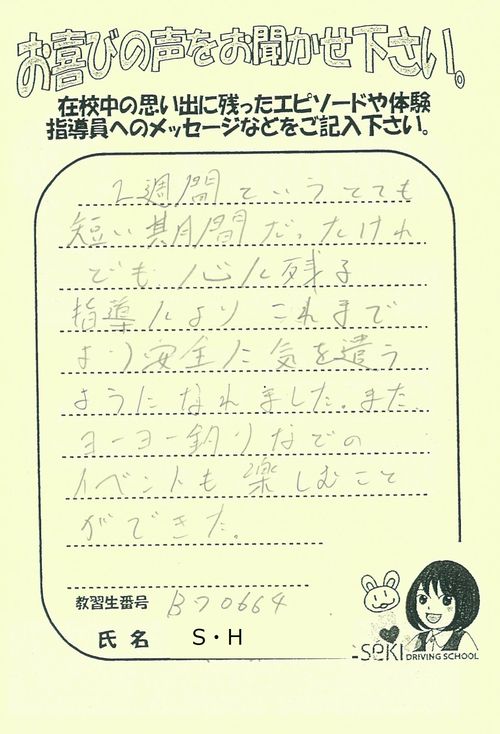 お喜びの声をお聞かせ下さい。
在校中の思い出に残ったエピソードや体験
指導員へのメッセージなどをご記入下さい。
2週間というとても
短い期間だったけれ
ども、心に残る
指導により これまで
より安全に気を遣う
ようになれました。また、
ヨーヨー釣りなどの
イベントも楽しむこと
ができた。
教習生番号 B70664
氏名 S・H
SEKI DRIVING SCHOOL